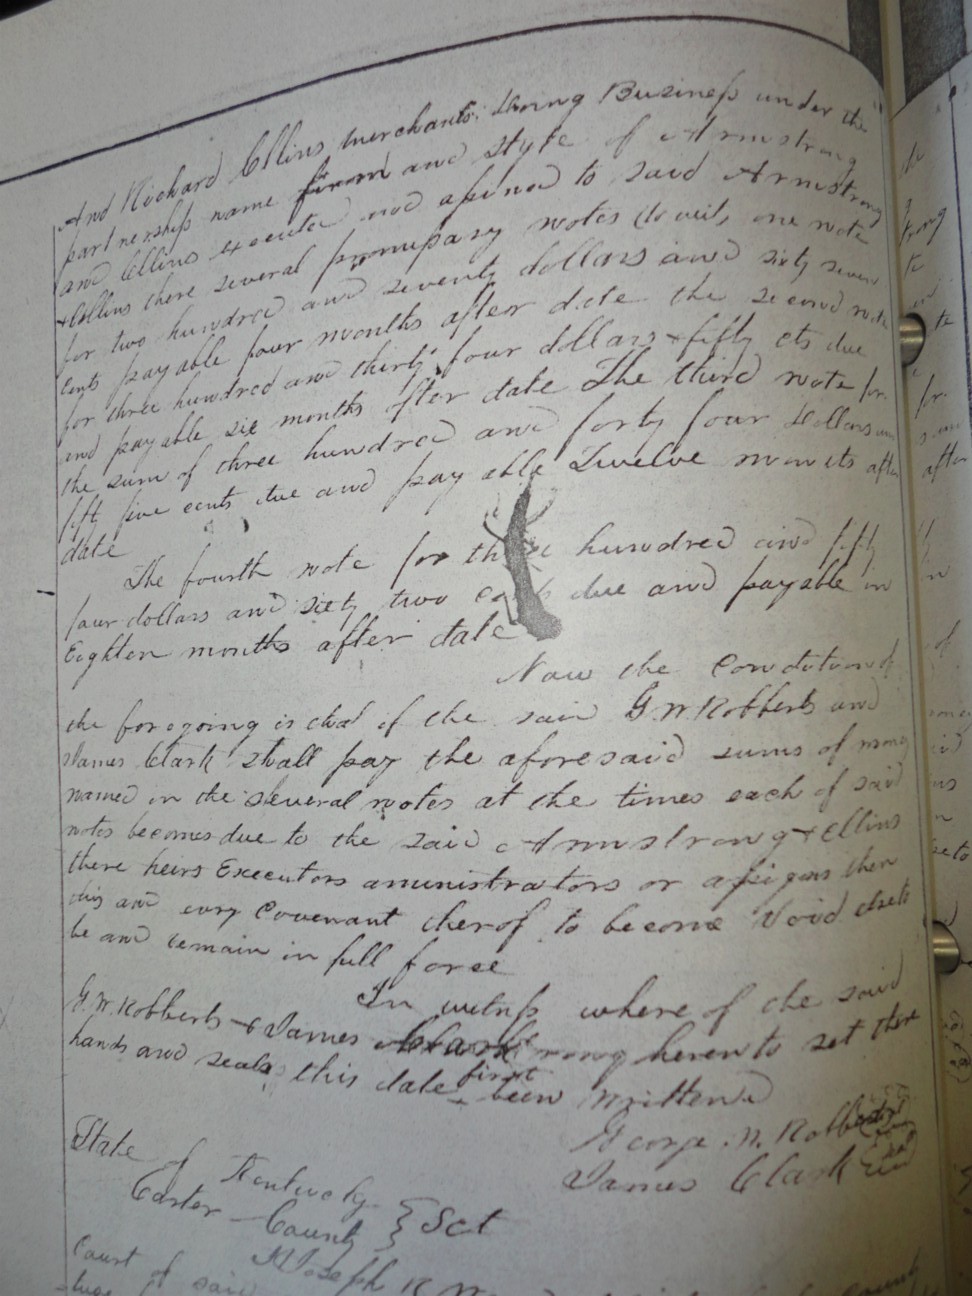 And Richard Collins merchants. Doing Business under the
partnership name firom and style of Armstrong
and Collins executed and assined to said Armstrong
+ Collins there several promissary notes (to wit, one note
for two hundred and seventy dollars and sixty seven
cents payable four months after date the second note
for three hundred and thirty four dollars + fifty cts due
and payable six months after date The third note for
the sum of three hundred and forty four Dollars and
fift five cents due and payable Twelve monts after
date
The fourth note for three hundred and fifty
four dollars and sixty two cents due and payable in
Eighten months after date
Now the Condition of
the foregoing is that if the said G. W. Robberts and
James Clark shall pay the aforesaid sums of money
named in the several notes at the times each of said
notes becomes due to the said Armstrong + Collins
there heirs Executors aministrators or assigns then
this and evry Covenant therof to become Void elsets
be and remain in full force
In witness where of the said
G. W. Robberts + James Clark hereunto set ther
hands and seals this date first been written
George. W. Robberts
James Clark
State of Kentucky
Carter County } Sct
I Joseph R
Court of said